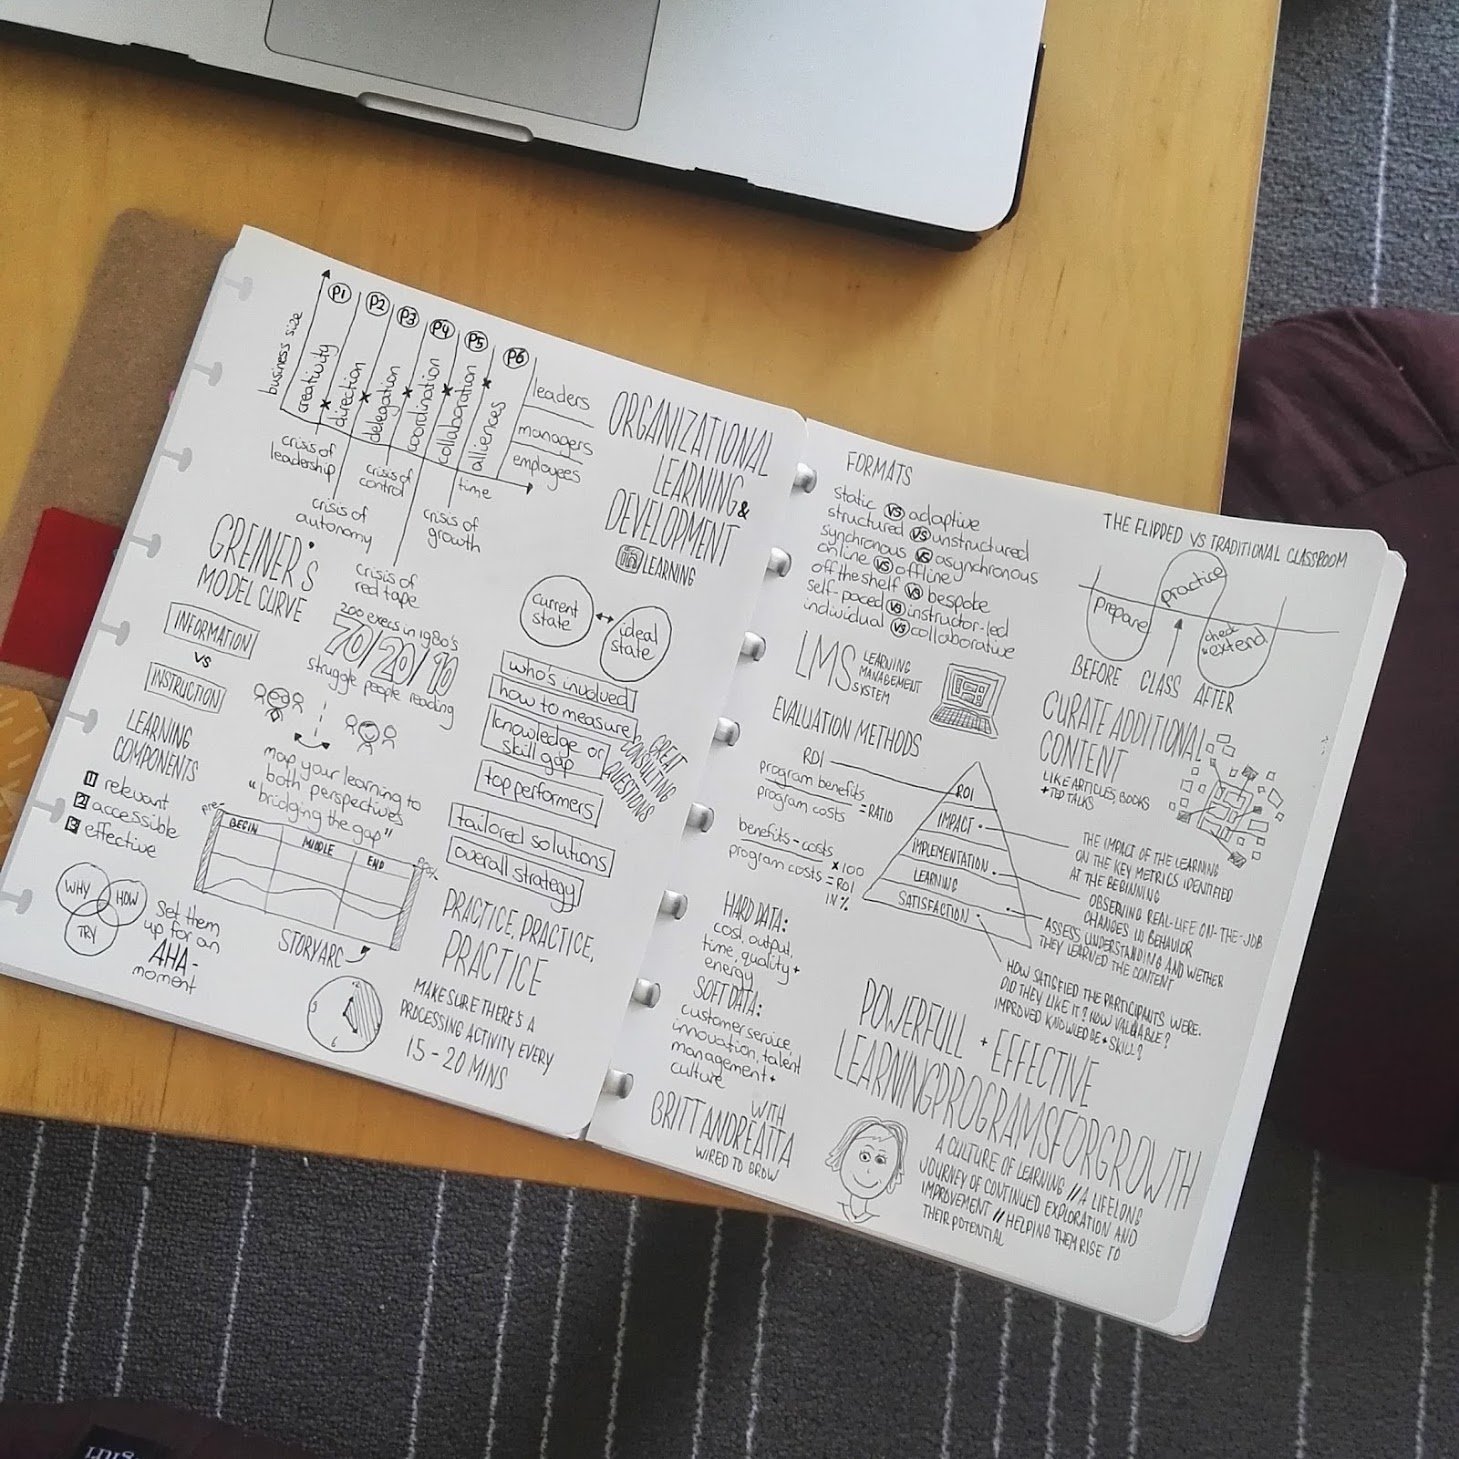 P1
P2
P3
P4
P5
P6
business size
creativity
direction
delegation
coordination
collaboration
alliences
leaders
managers
employees
time
crisis of
leadership
crisis of
autonomy
crisis of
control
crisis of
red tape
crisis of
growth
GREINER'S
MODEL CURVE
ORGANIZATIONAL
LEARNING &
DEVELOPMENT
in LEARNING
INFORMATION
VS
INSTRUCTION
200 execs in 1980's
70/20/10
struggle people reading
current
state
ideal
state
who's involved
how to measure
knowledge or
skill gap
top performers
tailored solutions
overall strategy
GREAT
CONSULTING
QUESTIONS
LEARNING
COMPONENTS
1 relevant
2 accessible
3 effective
map your learning to
both perspectives
"bridging the gap"
pre-
BEGIN
MIDDLE
END
STORY ARC
WHY
HOW
TRY
Set them
up for an
AHA-
moment
PRACTICE, PRACTICE,
PRACTICE
MAKE SURE THERE'S A
PROCESSING ACTIVITY EVERY
15-20 MINS
FORMATS
static VS adaptive
structured VS unstructured
synchronous VS asynchronous
online VS offline
off the shelf VS bespoke
self-paced VS instructor-led
individual VS collaborative
THE FLIPPED VS TRADITIONAL CLASSROOM
prepare
practice
check
+ extend
BEFORE
CLASS
AFTER
LMS LEARNING
MANAGEMENT
SYSTEM
CURATE ADDITIONAL
CONTENT
LIKE ARTICLES, BOOKS
+ TED TALKS
EVALUATION METHODS
ROI
program benefits
program costs
= RATIO
benefits - costs
program costs
x 100
= ROI
IN %
ROI
IMPACT
IMPLEMENTATION
LEARNING
SATISFACTION
THE IMPACT OF THE LEARNING
ON THE KEY METRICS IDENTIFIED
AT THE BEGINNING
OBSERVING REAL-LIFE ON-THE-JOB
CHANGES IN BEHAVIOR
ASSESS UNDERSTANDING AND WETHER
THEY LEARNED THE CONTENT
HOW SATISFIED THE PARTICIPANTS WERE.
DID THEY LIKE IT? HOW VALUABLE?
IMPROVED KNOWLEDGE + SKILL?
HARD DATA:
cost, output,
time, quality +
energy
SOFT DATA:
customer service,
innovation, talent
management +
culture
WITH
BRITT ANDREATTA
WIRED TO GROW
POWERFULL + EFFECTIVE
LEARNINGPROGRAMS FOR GROWTH
A CULTURE OF LEARNING // A LIFELONG
JOURNEY OF CONTINUED EXPLORATION AND
IMPROVEMENT // HELPING THEM RISE TO
THEIR POTENTIAL